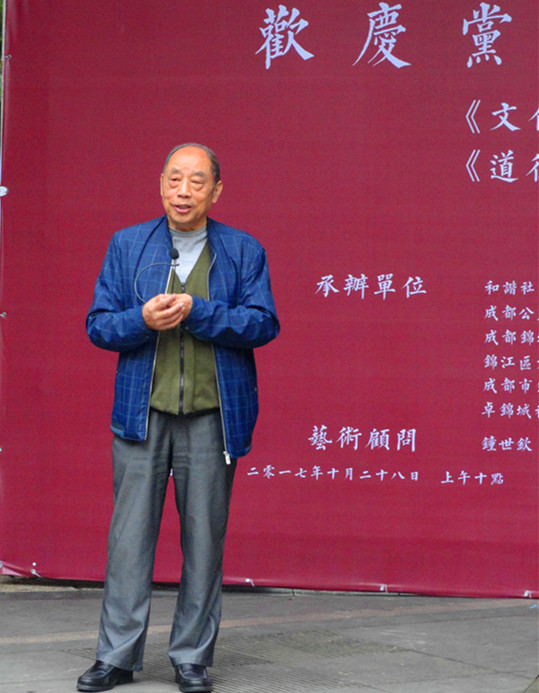 歡慶黨
《文化
《道德
承辦單位
和諧社
成都公
成都錦
錦江區
成都市
卓錦城
藝術顧問
鍾世欽
二零一七年十月二十八日 上午十點